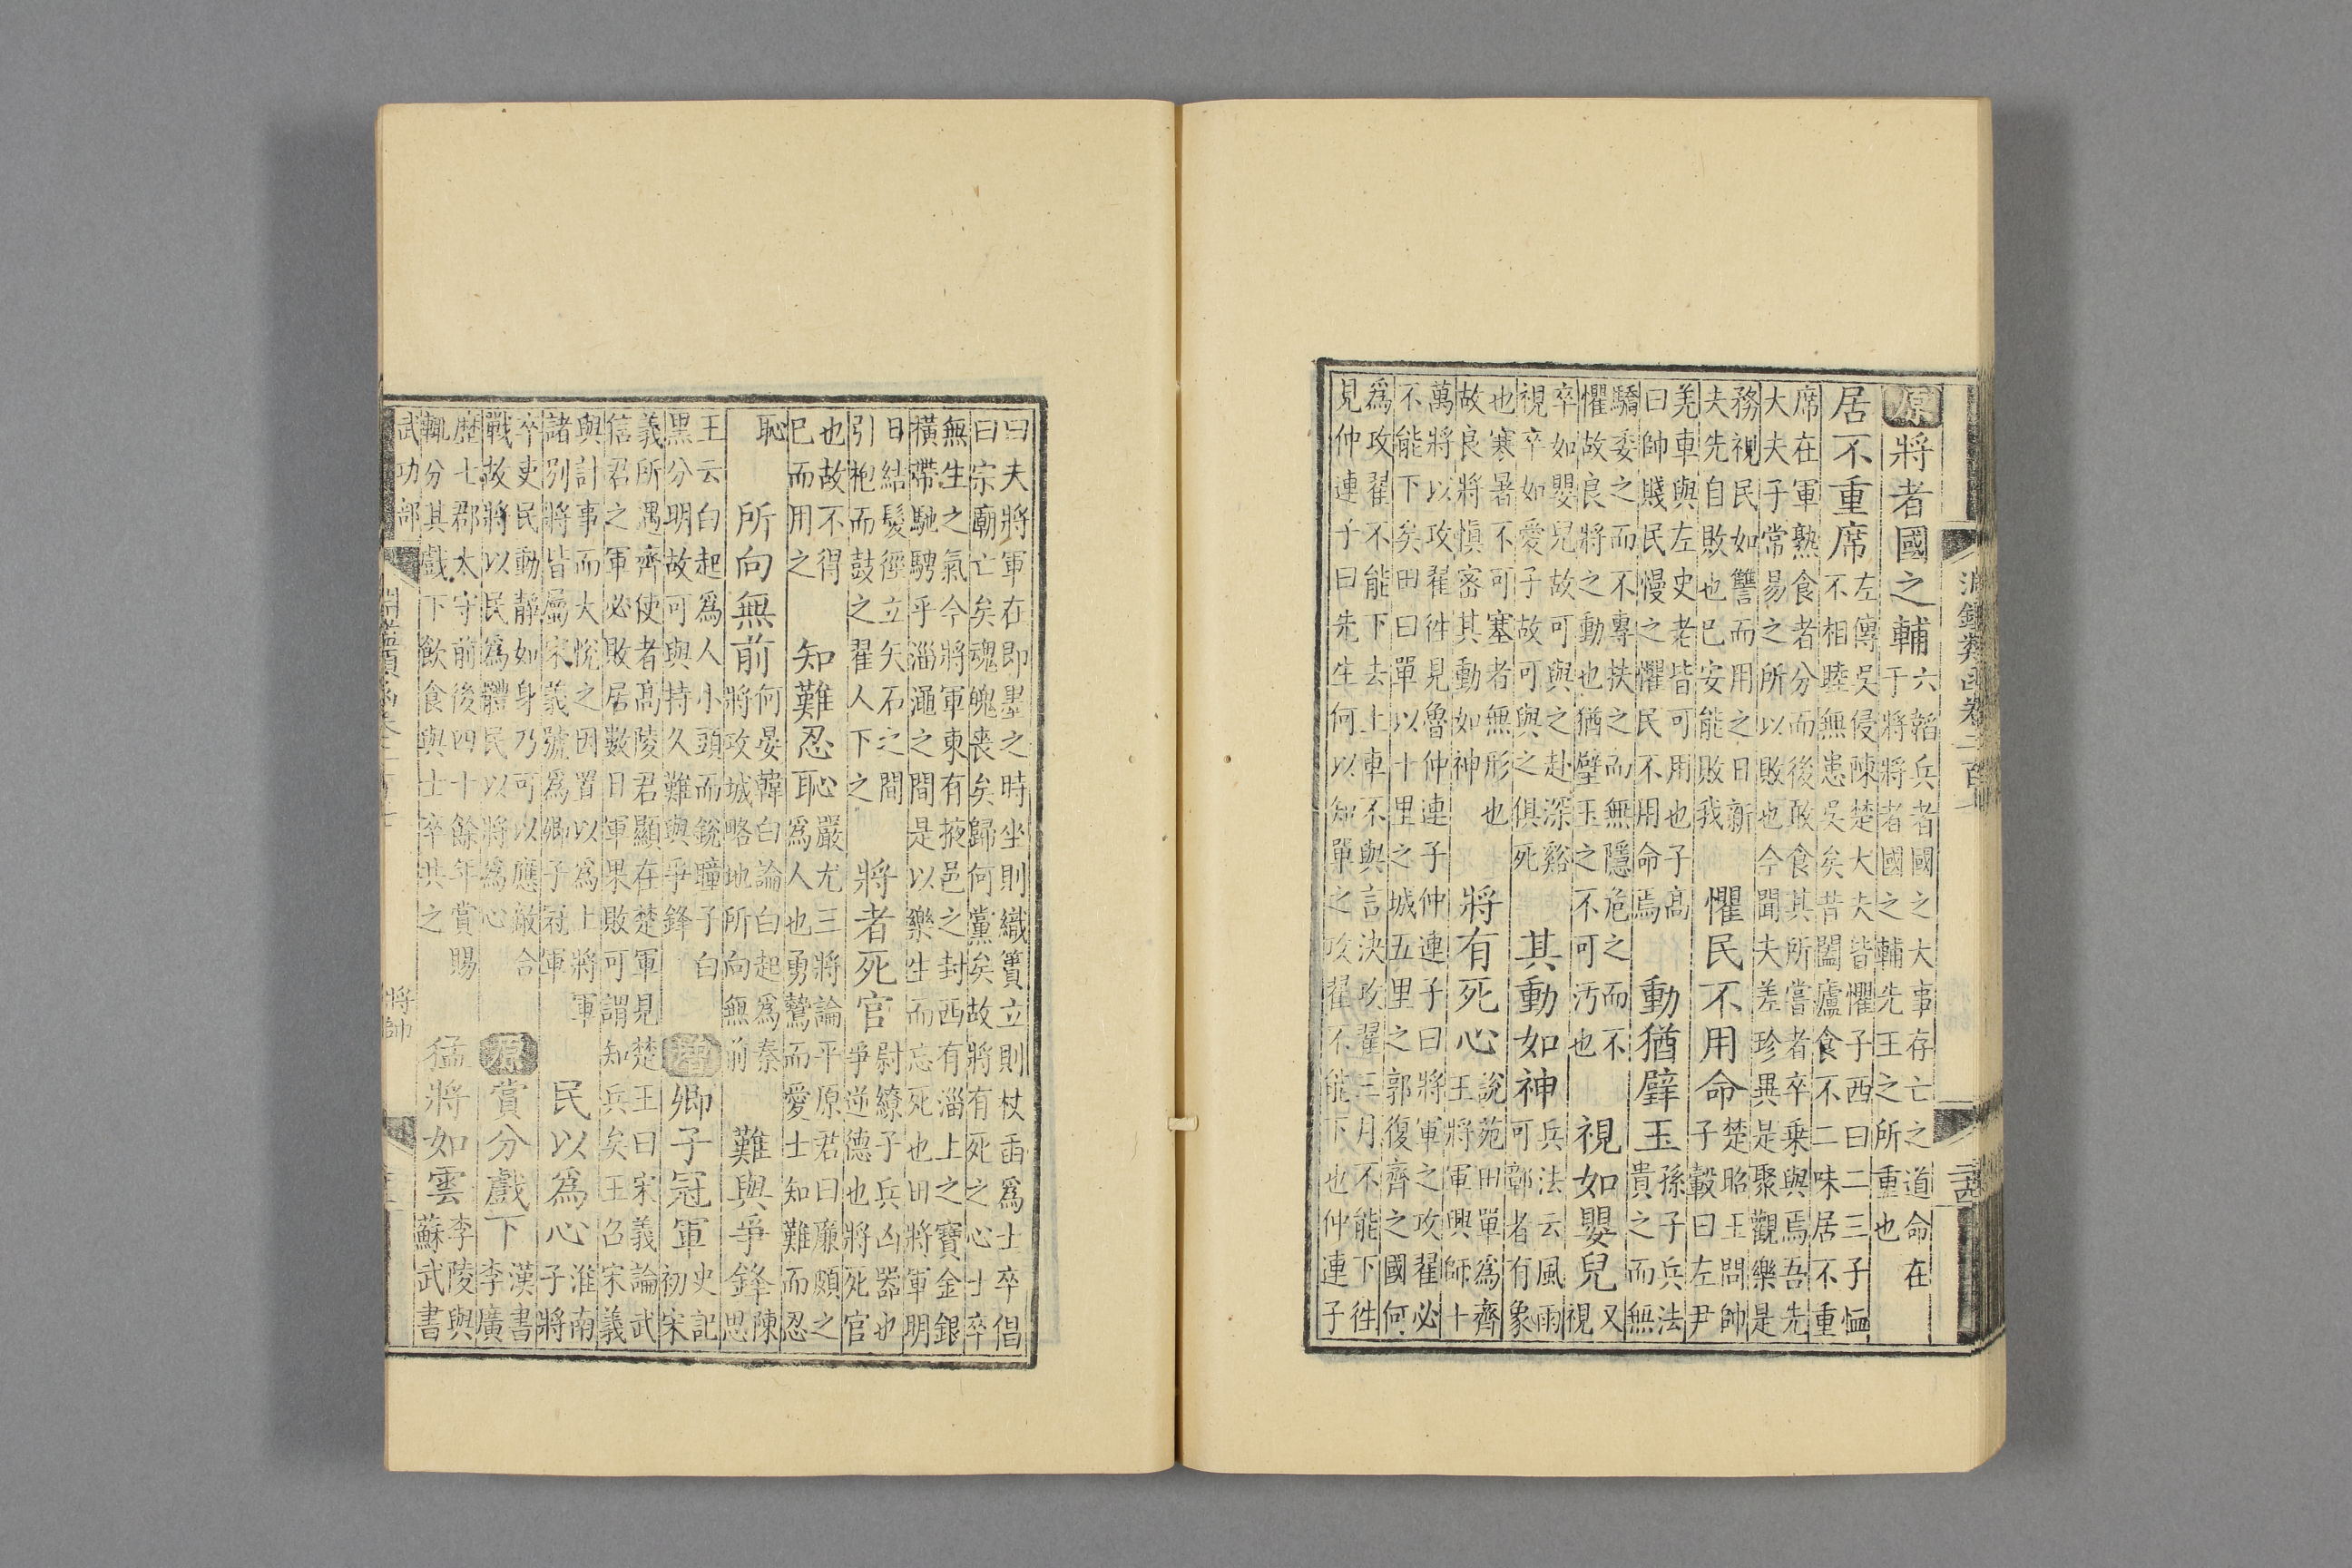 淵鑑類函卷二百
原將者國之輔
六韜兵者國之大事存亡之道命在
于將將者國之輔先王之所重也
居不重席
左傳吳侵陳楚大夫皆懼子西曰二三子恤
不相睦無患吳矣昔闔廬食不二味居不重
席在軍熟食者分而後敢食其所嘗者卒乗與焉吾先
大夫子常易之所以敗也今聞夫差珍異是聚觀樂是
務視民如讐而用之日新
夫先自敗也已安能敗我
懼民不用命
楚昭王問帥
子轂曰左尹
羌車與左史老皆可用也子高
曰帥賤民慢之懼民不用命焉
動猶璧玉
孫子兵法
貴之而無
驕委之而不專扶之而無隱危之而不
懼故良將之動也猶璧玉之不可汚也
視如嬰兒
又
視
卒如嬰兒故可與之赴深谿
視卒如愛子故可與之俱死
其動如神
兵法云風雨
可鄣者有象
也寒暑不可塞者無形也
故良將慎密其動如神
將有死心
說苑田單為齊
王將軍興師十
萬將以攻翟徃見魯仲連子仲連子曰將軍之攻翟必
不能下矣田曰單以十里之城五里之郭復齊之國何
為攻翟不能下去上車不與言決攻翟三月不能下徃
見仲連子曰先生何以知單之攻翟不能下也仲連子
曰夫將軍在即墨之時坐則織簣立則杖臿為士卒倡
曰宗廟亡矣魂魄喪矣歸何黨矣故將有死之心士卒
無生之氣今將軍東有掖邑之封西有淄上之寶金銀
橫帶馳騁乎淄澠之間是以樂生而忘死也田將軍明
日結髮徑立矢石之間
引枹而鼓之翟人下之
將者死官
尉繚子兵凶器也
爭逆德也將死官
也故不得
巳而用之
知難忍恥
嚴尤三將論平原君曰廉頗之
為人也勇鷙而愛士知難而忍
恥
所向無前
何晏韓白論白起為秦
將攻城略地所向無前
難與爭鋒
陳
思
王云白起為人小頭而銳瞳子白
黑分明故可與持久難與爭鋒
增卿子冠軍
史記
初宋
義所遇齊使者高陵君顯在楚軍見楚王曰宋義論武
信君之軍必敗居數日軍果敗可謂知兵矣王召宋義
與計事而大悅之因置以為上將軍
諸別將皆屬宋義號為卿子冠軍
民以為心
淮南
子將
卒吏民動靜如身乃可以應敵合
戰故將以民為體民以將為心
原賞分戲下
漢書
李廣
歴七郡太守前後四十餘年賞賜
輒分其戲下飲食與士卒共之
猛將如雲
李陵與
蘇武書
武功部
將帥